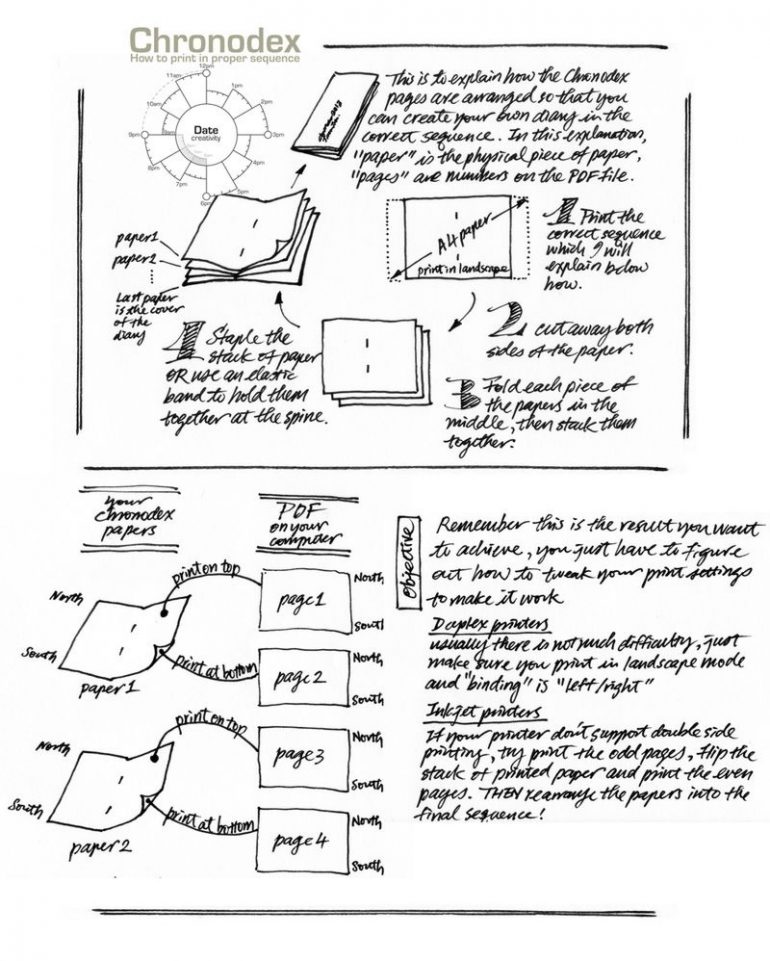 Chronodex
How to print in proper sequence
12pm
11am
1pm
10am
2pm
9pm
3pm
8pm
4pm
7pm
5pm
6pm
Date
creativity
This is to explain how the Chronodex
pages are arranged so that you
can create your own diary in the
correct sequence. In this explanation,
"paper" is the physical piece of paper,
"pages" are numbers on the PDF file.
paper 1
paper 2
Last paper
is the cover
of the
diary
A4 paper
print in landscape
1 Print the
correct sequence
which I will
explain below
how.
2 cut away both
sides of the paper.
3 Fold each piece of
the papers in the
middle, then stack them
together.
Staple the
stack of paper
OR use an elastic
band to hold them
together at the spine.
your
chronodex
papers
PDF
on your
computer
North
South
paper 1
print on top
print at bottom
page 1
North
South
page 2
North
South
North
South
paper 2
print on top
print at bottom
page 3
North
South
page 4
North
South
Objective
Remember this is the result you want
to achieve, you just have to figure
out how to tweak your print settings
to make it work
Duplex printers
usually there is not much difficulty, just
make sure you print in landscape mode
and "binding" is "left/right"
Inkjet printers
If your printer don't support double side
printing, try print the odd pages, flip the
stack of printed paper and print the even
pages. THEN rearrange the papers into the
final sequence!